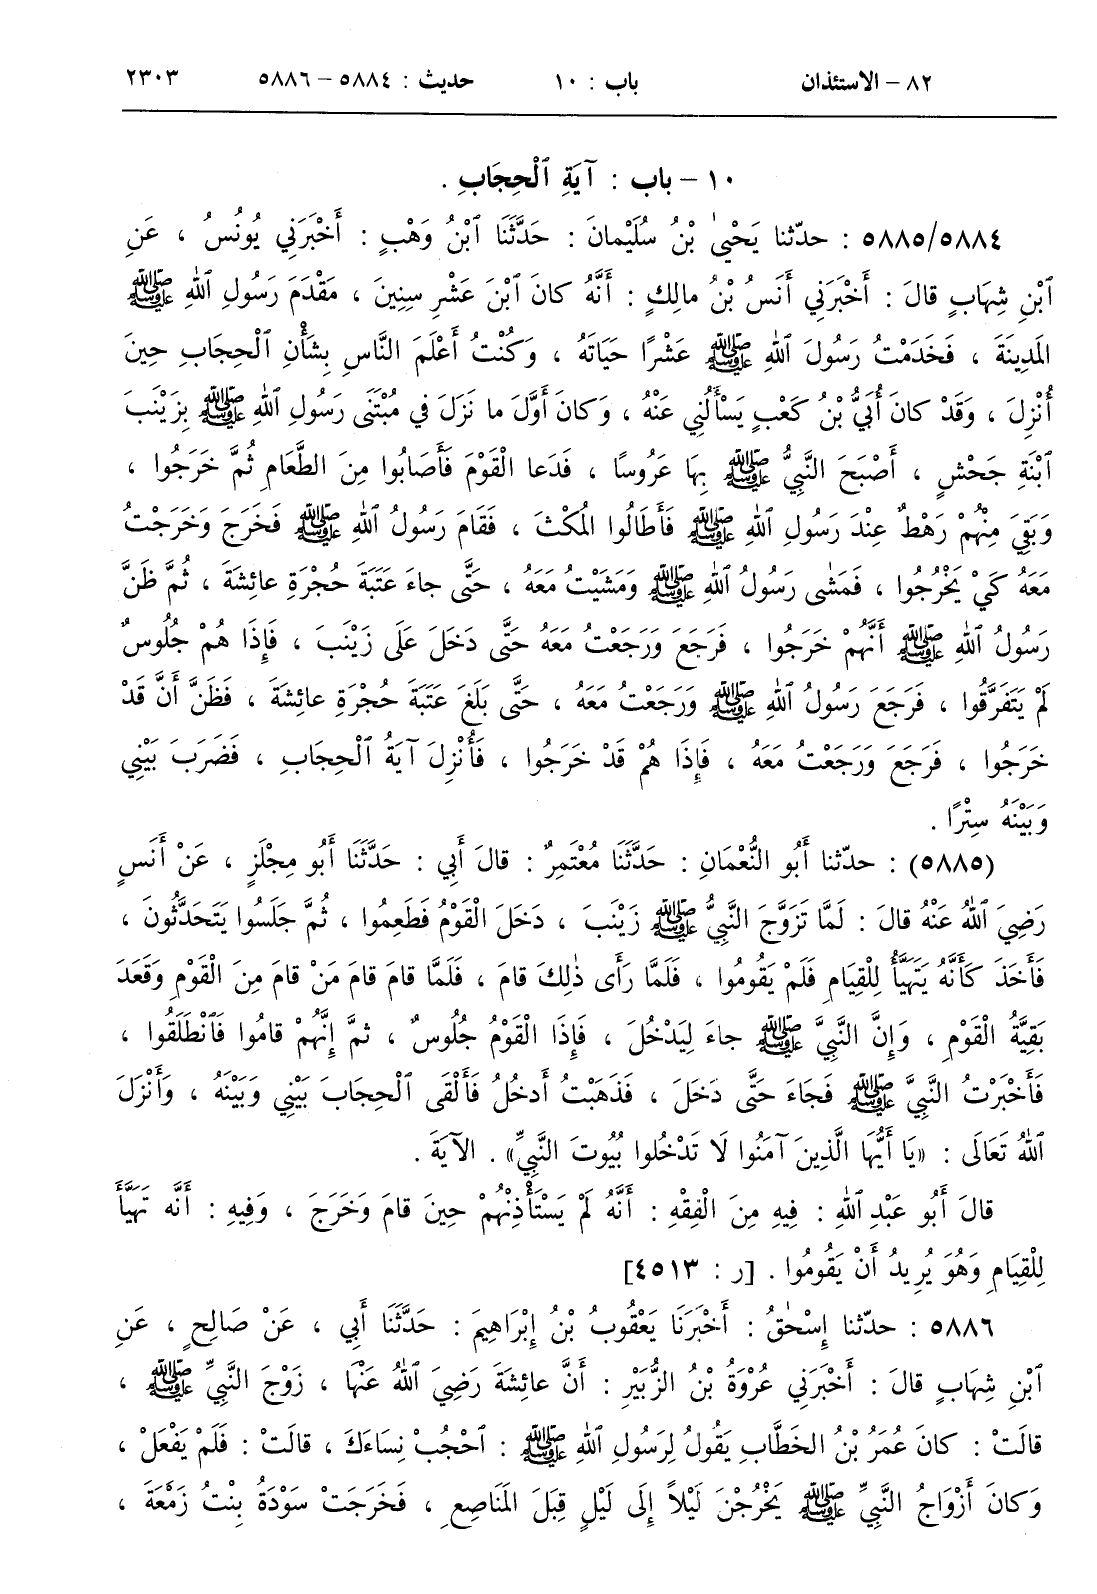 ٨٢ – الاستئذان باب : ١٠ حديث : ٥٨٨٤ – ٥٨٨٦ ٢٣٠٣
١٠ – باب : آيَةِ ٱلْحِجَابِ .
٥٨٨٥/٥٨٨٤ : حدّثنا يَحْيىٰ بْنُ سُلَيْمانَ : حَدَّثَنَا ٱبْنُ وَهْبٍ : أَخْبَرَنِي يُونُسُ ، عَنِ
ٱبْنِ شِهَابٍ قالَ : أَخْبَرَنِي أَنَسُ بْنُ مالِكٍ : أَنَّهُ كانَ ٱبْنَ عَشْرِ سِنِينَ ، مَقْدَمَ رَسُولِ ٱللهِ ﷺ
المَدِينَةَ ، فَخَدَمْتُ رَسُولَ ٱللهِ ﷺ عَشْرًا حَيَاتَهُ ، وَكُنْتُ أَعْلَمَ النَّاسِ بِشَأْنِ ٱلْحِجَابِ حِينَ
أُنْزِلَ ، وَقَدْ كانَ أُبَيُّ بْنُ كَعْبٍ يَسْأَلُنِي عَنْهُ ، وَكانَ أَوَّلَ ما نَزَلَ في مُبْتَنَى رَسُولِ ٱللهِ ﷺ بِزَيْنَبَ
ٱبْنَةِ جَحْشٍ ، أَصْبَحَ النَّبِيُّ ﷺ بِهَا عَرُوسًا ، فَدَعا الْقَوْمَ فَأَصَابُوا مِنَ الطَّعَامِ ثُمَّ خَرَجُوا ،
وَبَقِيَ مِنْهُمْ رَهْطٌ عِنْدَ رَسُولِ ٱللهِ ﷺ فَأَطَالُوا المُكْثَ ، فَقَامَ رَسُولُ ٱللهِ ﷺ فَخَرَجَ وَخَرَجْتُ
مَعَهُ كَيْ يَخْرُجُوا ، فَمَشٰى رَسُولُ ٱللهِ ﷺ وَمَشَيْتُ مَعَهُ ، حَتَّى جاءَ عَتَبَةَ حُجْرَةِ عائِشَةَ ، ثُمَّ ظَنَّ
رَسُولُ ٱللهِ ﷺ أَنَّهُمْ خَرَجُوا ، فَرَجَعَ وَرَجَعْتُ مَعَهُ حَتَّى دَخَلَ عَلَى زَيْنَبَ ، فَإِذَا هُمْ جُلُوسٌ
لَمْ يَتَفَرَّقُوا ، فَرَجَعَ رَسُولُ ٱللهِ ﷺ وَرَجَعْتُ مَعَهُ ، حَتَّى بَلَغَ عَتَبَةَ حُجْرَةِ عائِشَةَ ، فَظَنَّ أَنَّ قَدْ
خَرَجُوا ، فَرَجَعَ وَرَجَعْتُ مَعَهُ ، فَإِذَا هُمْ قَدْ خَرَجُوا ، فَأُنْزِلَ آيَةُ ٱلْحِجَابِ ، فَضَرَبَ بَيْنِي
وَبَيْنَهُ سِتْرًا .
(٥٨٨٥) : حدّثنا أَبُو النُّعْمَانِ : حَدَّثَنَا مُعْتَمِرٌ : قالَ أَبِي : حَدَّثَنَا أَبُو مِجْلَزٍ ، عَنْ أَنَسٍ
رَضِيَ ٱللهُ عَنْهُ قالَ : لَمَّا تَزَوَّجَ النَّبِيُّ ﷺ زَيْنَبَ ، دَخَلَ الْقَوْمُ فَطَعِمُوا ، ثُمَّ جَلَسُوا يَتَحَدَّثُونَ ،
فَأَخَذَ كَأَنَّهُ يَتَهَيَّأُ لِلْقِيَامِ فَلَمْ يَقُومُوا ، فَلَمَّا رَأَى ذٰلِكَ قامَ ، فَلَمَّا قامَ قامَ مَنْ قامَ مِنَ الْقَوْمِ وَقَعَدَ
بَقِيَّةُ الْقَوْمِ ، وَإِنَّ النَّبِيَّ ﷺ جاءَ لِيَدْخُلَ ، فَإِذَا الْقَوْمُ جُلُوسٌ ، ثمَّ إِنَّهُمْ قامُوا فَٱنْطَلَقُوا ،
فَأَخْبَرْتُ النَّبِيَّ ﷺ فَجَاءَ حَتَّى دَخَلَ ، فَذَهَبْتُ أَدخُلُ فَأَلْقَى ٱلْحِجَابَ بَيْنِي وَبَيْنَهُ ، وَأَنْزَلَ
ٱللهُ تَعَالَى : «يَا أَيُّهَا الَّذِينَ آمَنُوا لَا تَدْخُلُوا بُيُوتَ النَّبِيِّ» . الآيَةَ .
قالَ أَبُو عَبْدِ ٱللهِ : فِيهِ مِنَ الْفِقْهِ : أَنَّهُ لَمْ يَسْتَأْذِنْهُمْ حِينَ قامَ وَخَرَجَ ، وَفِيهِ : أَنَّه تَهَيَّأَ
لِلْقِيَامِ وَهُوَ يُرِيدُ أَنْ يَقُومُوا . [ر : ٤٥١٣]
٥٨٨٦ : حدّثنا إِسْحٰقُ : أَخْبَرَنَا يَعْقُوبُ بْنُ إِبْرَاهِيمَ : حَدَّثَنَا أَبِي ، عَنْ صَالِحٍ ، عَنِ
ٱبْنِ شِهَابٍ قالَ : أَخْبَرَنِي عُرْوَةُ بْنُ الزُّبَيْرِ : أَنَّ عائِشَةَ رَضِيَ ٱللهُ عَنْهَا ، زَوْجَ النَّبِيِّ ﷺ ،
قالَتْ : كانَ عُمَرُ بْنُ الخَطَّابِ يَقُولُ لِرَسُولِ ٱللهِ ﷺ : ٱحْجُبْ نِسَاءَكَ ، قالَتْ : فَلَمْ يَفْعَلْ ،
وَكانَ أَزْوَاجُ النَّبِيِّ ﷺ يَخْرُجْنَ لَيْلاً إِلَى لَيْلٍ قِبَلَ المَنَاصِعِ ، فَخَرَجَتْ سَوْدَةُ بِنْتُ زَمْعَةَ ،